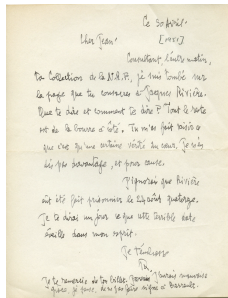 Ce 30 Avril.
[1951]
Cher Jean,
Consultant l'autre matin,
ta collection de la N.R.F., je suis tombé sur
la page que tu consacres à Jacques Rivière.
Que te dire et comment te dire ? Tout le reste
est de la bourre à côté. Tu m'as fait saisir ce
que c'est qu'une certaine vérité du cœur. Je ne
dis pas davantage, et pour cause.
J'ignorais que Rivière
eût été fait prisonnier le 24 août quatorze.
Je te dirai un jour ce que cette terrible date
éveille dans mon esprit.
Je t'embrasse
Je te remercie de ton billet. J'aurais mauvaise
grâce, je pense, à ne pas faire signe à Barrault.